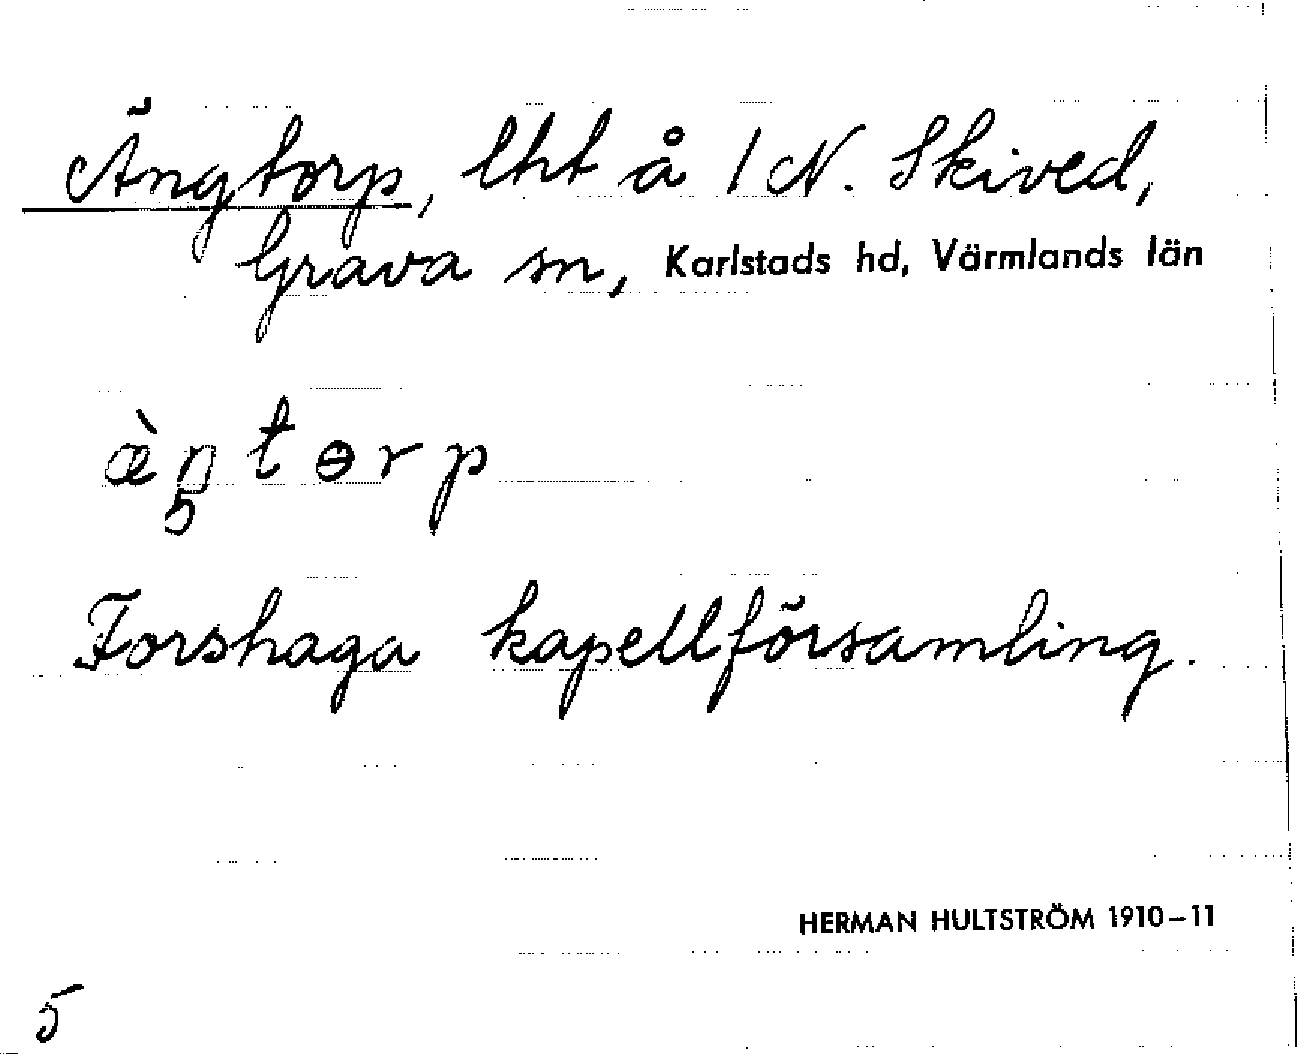 Ängtorp, lht å 1 N. Skived,
Grava sn, Karlstads hd, Värmlands län
æ̀ŋtɵrp
5
Forshaga kapellförsamling.
HERMAN HULTSTRÖM 1910–11
5